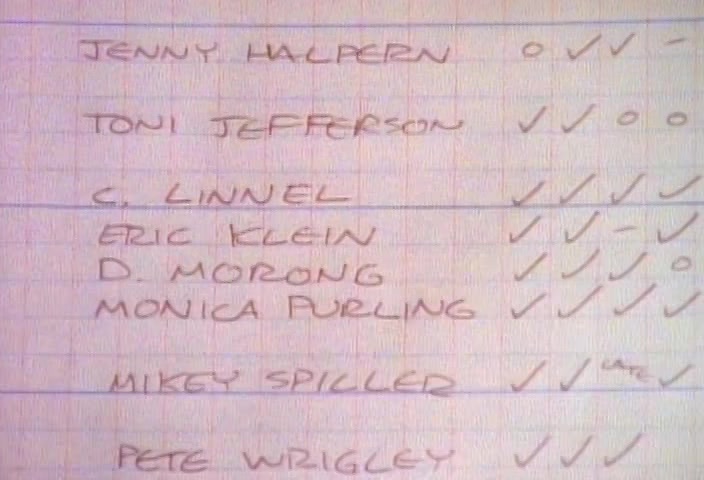 JENNY HALPERN o ✓ ✓ –
TONI JEFFERSON ✓ ✓ o o
C. LINNEL ✓ ✓ ✓ ✓
ERIC KLEIN ✓ ✓ – ✓
D. MORONG ✓ ✓ ✓ o
MONICA PURLING ✓ ✓ ✓ ✓
MIKEY SPILLER ✓ ✓ LATE ✓
PETE WRIGLEY ✓ ✓ ✓